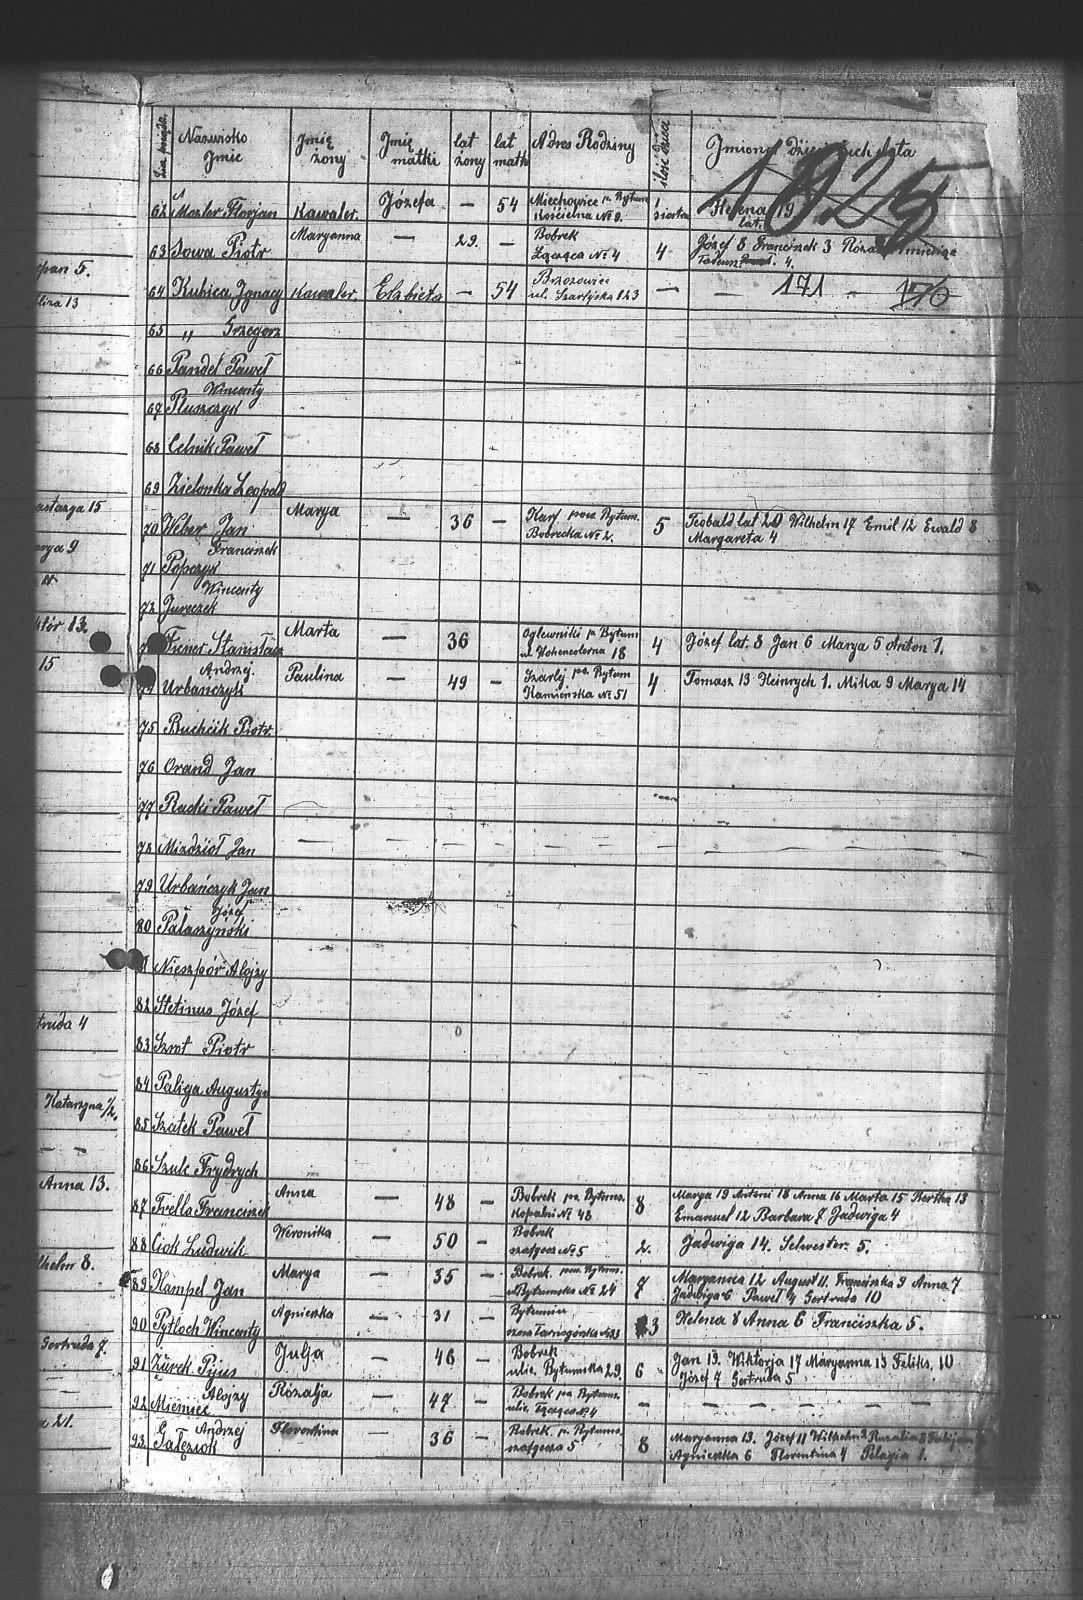 Nazwisko Imie | Jmię żony | Jmię matki | lat żony | lat matki | Adres Rodziny | ilość dzieci | Jmiona dzieci ich lata
1925
62 Mozler Florjan | Kawaler | Józefa | — | 54 | Miechowice p. Bytom Kościelna № 9. | 1 siostra | Helena 19 lat.
63 Sowa Piotr | Maryanna | — | 29. | — | Bobrek Łącząca № 4 | 4 | Józef 8 Franciszek 3 Róża miesięcy Tadeusz 4.
64 Kubica Jgnacy | Kawaler. | Elżbieta | — | 54 | Brzozowice ul. Szarlyska 123 | — | — 171 — 170
65 „ Grzegorz
66 Pandel Paweł
67 Pluszczyk Wincenty
68 Celnik Paweł
69 Zielonka Leopold
70 Weber Jan | Marya | — | 36 | — | Karf pow. Bytom. Bobrecka № 2. | 5 | Teobald lat 20 Wilhelm 17 Emil 12 Ewald 8 Margareta 4
71 Popczyk Franciszek
72 Jureczek Wincenty
Fiener Stanisław | Marta | — | 36 | Orlewniki p. Bytom ul. Hohencolerna 18 | 4 | Józef lat. 8 Jan 6 Marya 5 Anton 1.
Urbańczyk Andrzej. | Paulina | — | 49 | — | Szarlej pw. Bytom Kamieńska № 51 | 4 | Tomasz 13 Heinrych 1. Mika 9 Marya 14
75 Buchcik Piotr.
76 Orand Jan
77 Racki Paweł
78 Mizdzioł Jan | — | — | — | — | — | — | —
79 Urbańczyk Jan
80 Pałaszyński Józef
Nieszpór Alojzy
82 Stetinus Józef
83 Szrot Piotr
84 Paliga Augustyn
85 Szatek Paweł
86 Szulc Frydrych
87 Trella Franciszek | Anna | — | 48 | — | Bobrek pw. Bytoms. Kopalni № 48 | 8 | Marya 19 Antoni 18 Anna 16 Marta 15 Bertha 13 Emanuel 12 Barbara 7 Jadwiga 4
88 Ciok Ludwik | Weronika | — | 50 | — | Bobrek szafgocz № 5 | 2. | Jadwiga 14. Selwester. 5.
89 Hampel Jan | Marya | — | 35 | — | Bobrek. pow. Bytoms. ul. Bytomska № 24 | 7 | Maryanica 12 August 11. Franciszka 9 Anna 7 Jadwiga 6 Paweł 4 Gertruda 10
90 Pytloch Wincenty | Agnieszka | — | 31 | — | Bytomiu | 3 | Helena 8 Anna 6 Franciszka 5.
91 Żurek Pijus | Julja | — | 46 | — | Bobrek ulic. Bytomska 29. | 6 | Jan 19. Wiktorja 17 Maryanna 13 Feliks. 10 Józef 7 Gertruda 5
92 Miemiec Alojzy | Rozalja | — | 47 | — | Bobrek pw. Bytoms. ulic. Łącząca № 4 | — | — — — — — — —
93 Gałęziok Andrzej | Florentina | — | 36 | — | Bobrek. p. Bytoms. szafgocza 5 | 8 | Maryanna 13. Józef 11 Wilhelm 9 Rozalia 8 Agnieszka 6 Florentina 4 Pelagia 1.
pan 5.
liza 13
astazya 15
rya 9
któr 13.
15
truda 4
Katarzyna 1/2.
Anna 13.
lhelm 8.
Gertruda 7.
a 21.